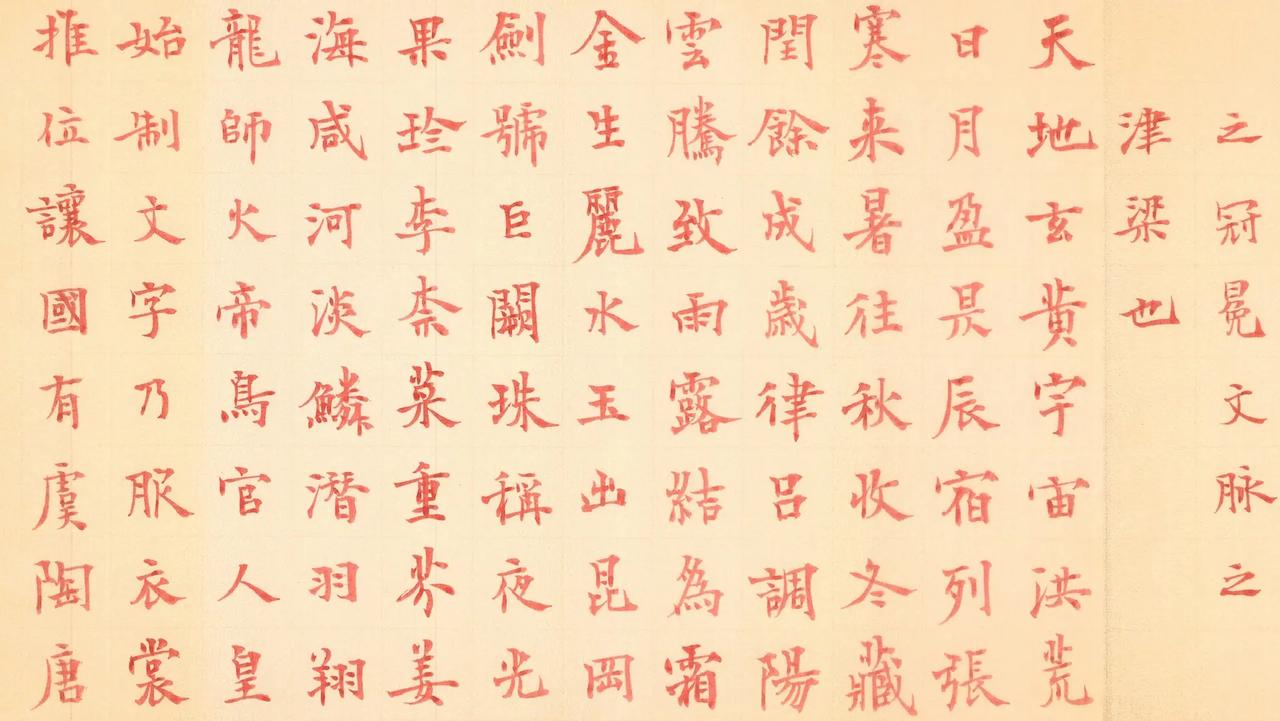 之冠冕文脉之
津梁也
天地玄黄宇宙洪荒
日月盈昃辰宿列張
寒来暑往秋收冬藏
閏餘成歲律呂調陽
雲騰致雨露結為霜
金生麗水玉出昆岡
劍號巨闕珠稱夜光
果珍李柰菜重芥姜
海咸河淡鱗潛羽翔
龍師火帝鳥官人皇
始制文字乃服衣裳
推位讓國有虞陶唐